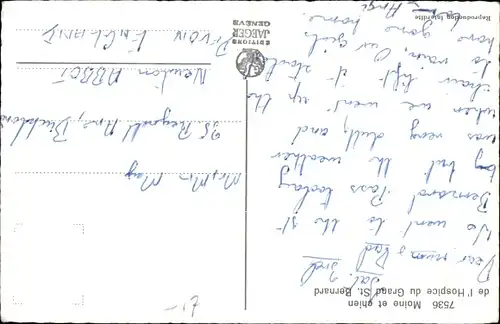 7536 Moine et chien
de l'Hospice du Grand St. Bernard
Sat. 3rd
Dear mum, Dad
We went to the St
Bernard Pass today
but the weather
was very dull, and
when we went up the
chair lift it started
to rain, Our girls
gone home
EDITIONS
JAEGER
GENEVE
Reproduction interdite
Mr, Mrs May
95
Newton ABBOT
DEVON ENGLAND